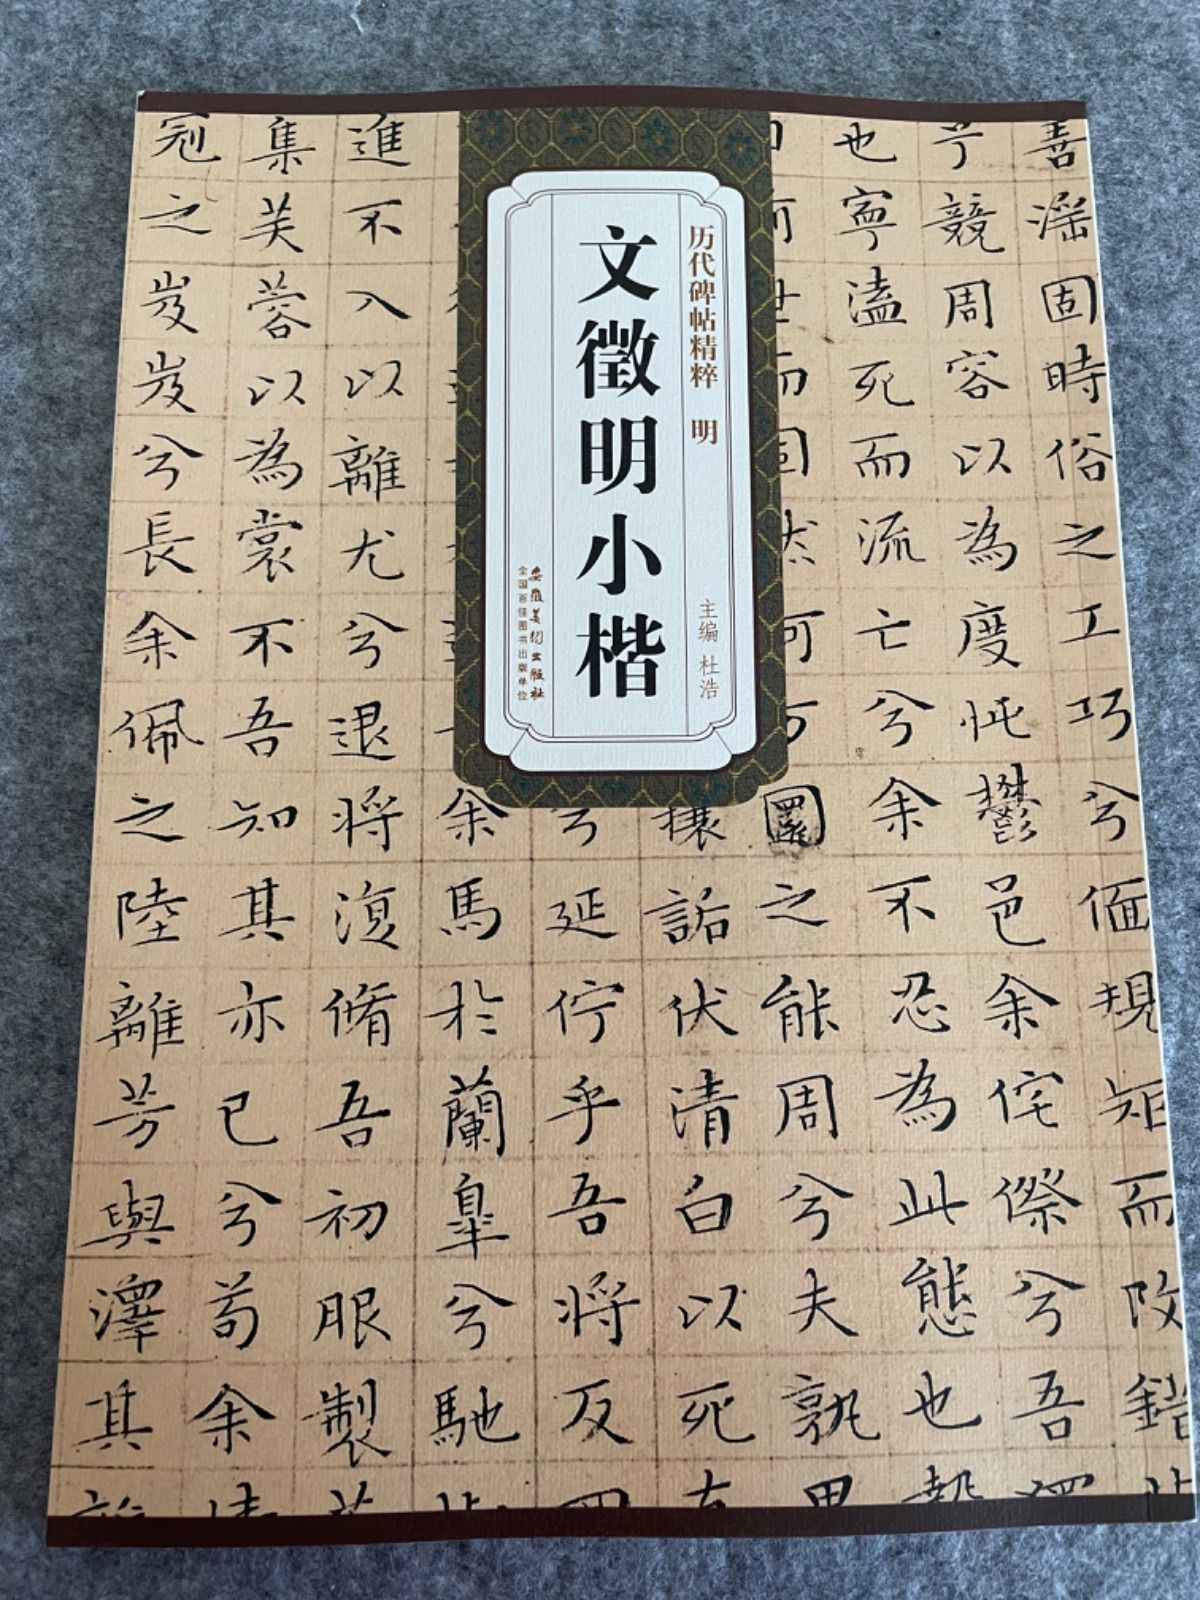 历代碑帖精粹 明
文徵明小楷
主编 杜浩
安徽美術出版社
全国百佳图书出版单位
善淫固時俗之工巧兮偭規矩而改錯
競周容以為度忳鬱邑余侘傺兮吾
也寧溘死而流亡兮余不忍為此態也
圜之能周兮夫孰
攘詬伏清白以死
兮延佇乎吾將反
余馬於蘭皋兮馳
進不入以離尤兮退將復脩吾初服製
集芙蓉以為裳不吾知其亦已兮苟余
冠之岌岌兮長余佩之陸離芳與澤其